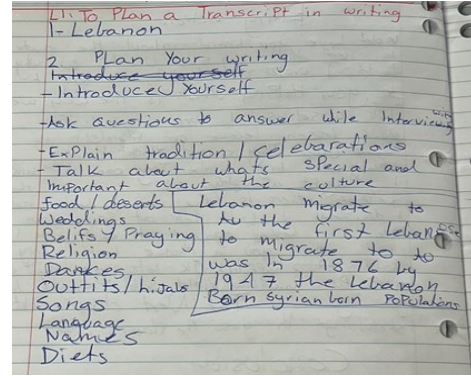 LI: To Plan a Transcript in writing
1- Lebanon
2 Plan Your writing
Introduce yourself
- Introduce Yourself
- Ask Questions to answer while Interviewing
- Explain tradition / celebarations
- Talk about whats special and
Important about the culture
food / deserts
Weddings
Belifs / Praying
Religion
Dances
Outfits / hijabs
Songs
Language
Names
Diets
Lebanon migrate to
Au the first Lebanese
to migrate to to
was In 1876 by
1947 the Lebanon
Born syrian born Populations